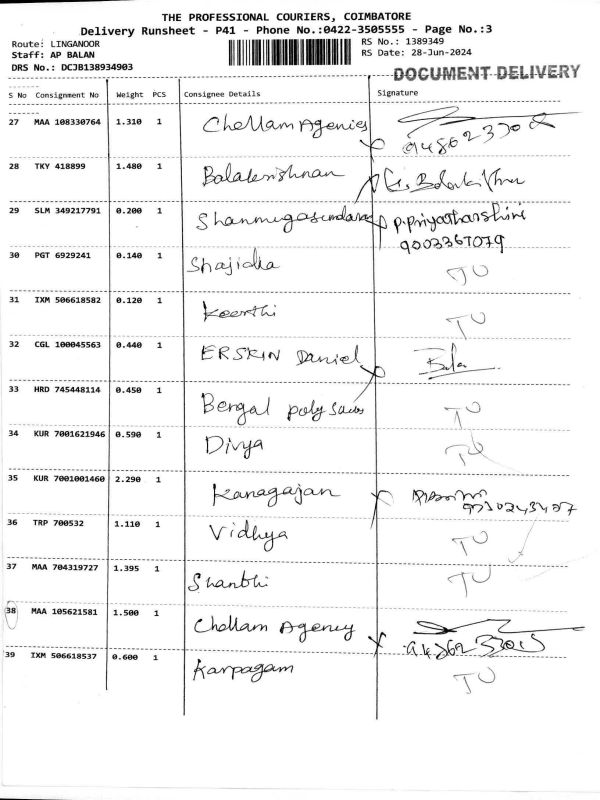 THE PROFESSIONAL COURIERS, COIMBATORE
Delivery Runsheet - P41 - Phone No.:0422-3505555 - Page No.:3
Route: LINGANOOR
Staff: AP BALAN
DRS No.: DCJB138934903
RS No.: 1389349
RS Date: 28-Jun-2024
DOCUMENT DELIVERY
S No Consignment No Weight PCS Consignee Details Signature
27 MAA 108330764 1.310 1 Chellam Agenies
28 TKY 418899 1.480 1 Balakrishnan
29 SLM 349217791 0.200 1 Shanmugasundaram P.Priyatharshini
9003367079
30 PGT 6929241 0.140 1 Shajidha TU
31 IXM 506618582 0.120 1 Keerthi TU
32 CGL 100045563 0.440 1 ERSKIN Daniel Bala
33 HRD 745448114 0.450 1 Bengal poly TU
34 KUR 7001621946 0.590 1 Divya TU
35 KUR 7001001460 2.290 1 Kanagajan
36 TRP 700532 1.110 1 Vidhya TU
37 MAA 704319727 1.395 1 Shanthi TU
38 MAA 105621581 1.500 1 Chellam Agency
39 IXM 506618537 0.600 1 Karpagam TU